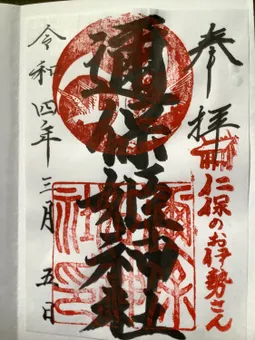 奉拝
仁保のお伊勢さん
邇保姫神社
令和四年三月五日